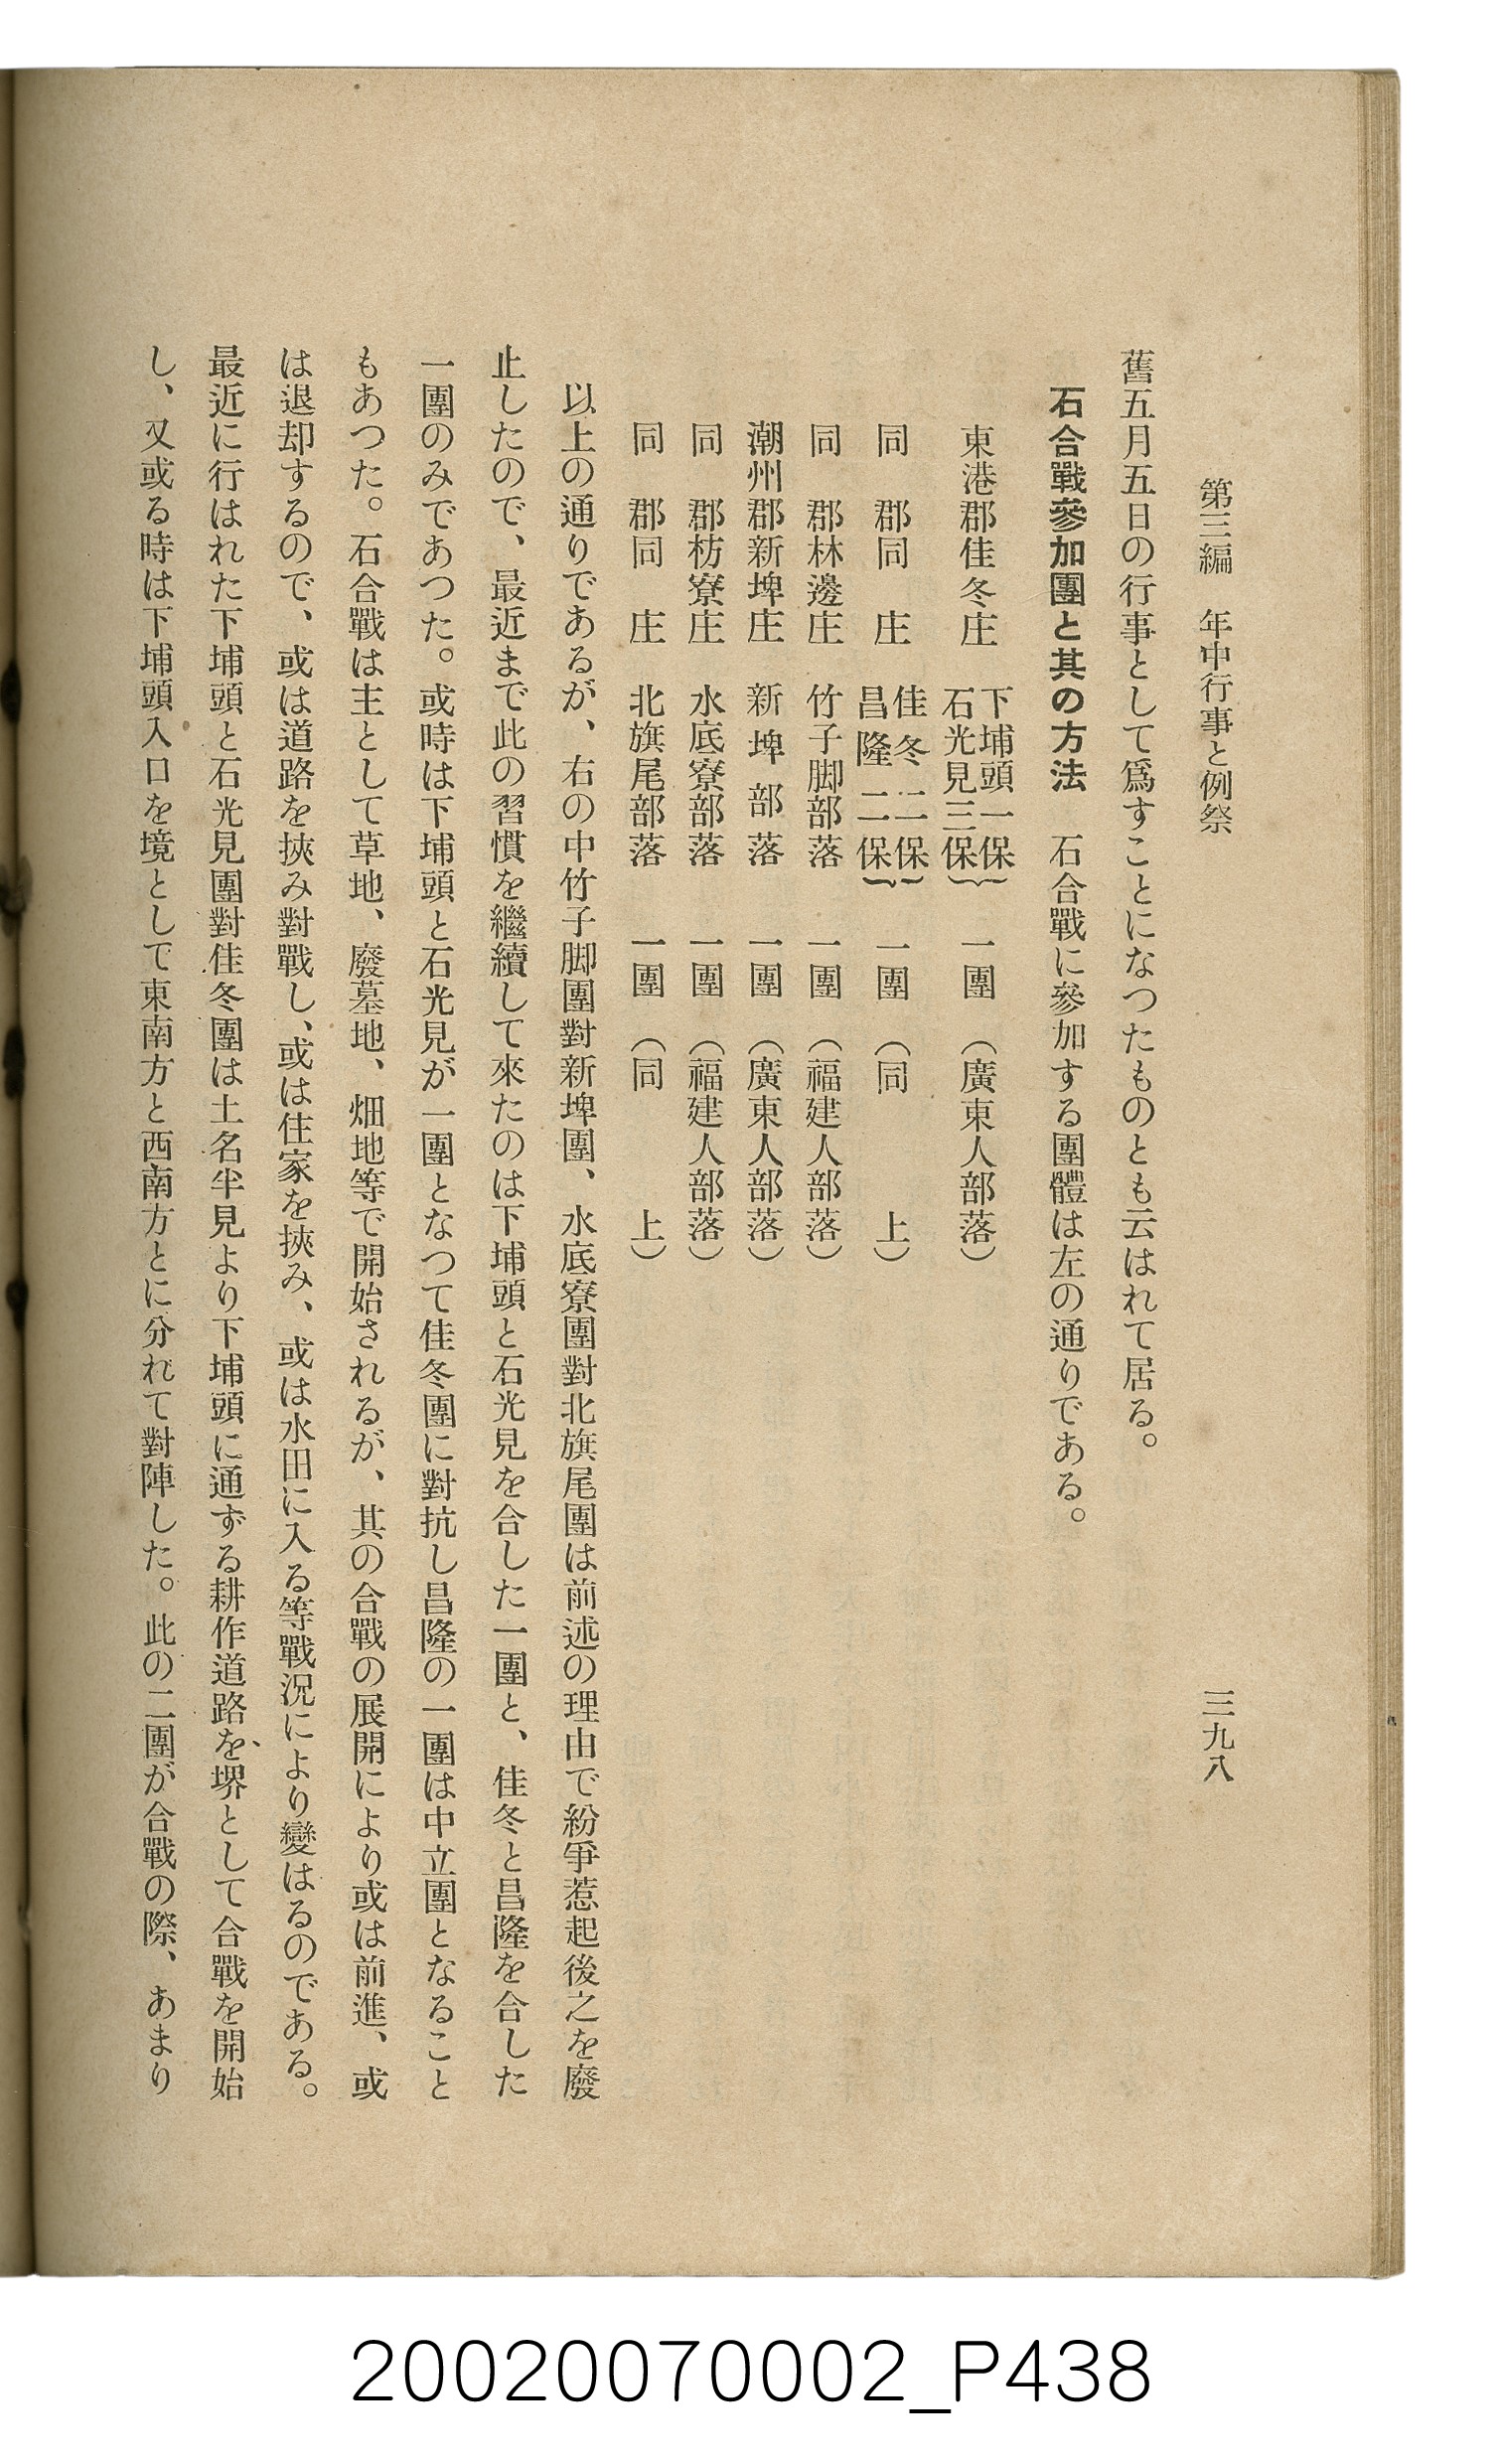 第三編　年中行事と例祭　三九八
舊五月五日の行事として爲すことになつたものとも云はれて居る。
石合戰參加團と其の方法　石合戰に參加する團體は左の通りである。
東港郡佳冬庄　下埔頭一保　石光見三保　一團　（廣東人部落）
同　郡同　庄　佳冬二保　昌隆二保　一團　（同　上）
同　郡林邊庄　竹子脚部落　一團　（福建人部落）
潮州郡新埤庄　新埤部落　一團　（廣東人部落）
同　郡枋寮庄　水底寮部落　一團　（福建人部落）
同　郡同　庄　北旗尾部落　一團　（同　上）
以上の通りであるが、右の中竹子脚團對新埤團、水底寮團對北旗尾團は前述の理由で紛爭惹起後之を廢
止したので、最近まで此の習慣を繼續して來たのは下埔頭と石光見を合した一團と、佳冬と昌隆を合した
一團のみであつた。或時は下埔頭と石光見が一團となつて佳冬團に對抗し昌隆の一團は中立團となること
もあつた。石合戰は主として草地、廢墓地、畑地等で開始されるが、其の合戰の展開により或は前進、或
は退却するので、或は道路を挾み對戰し、或は住家を挾み、或は水田に入る等戰況により變はるのである。
最近に行はれた下埔頭と石光見團對佳冬團は土名半見より下埔頭に通ずる耕作道路を堺として合戰を開始
し、又或る時は下埔頭入口を境として東南方と西南方とに分れて對陣した。此の二團が合戰の際、あまり
20020070002_P438